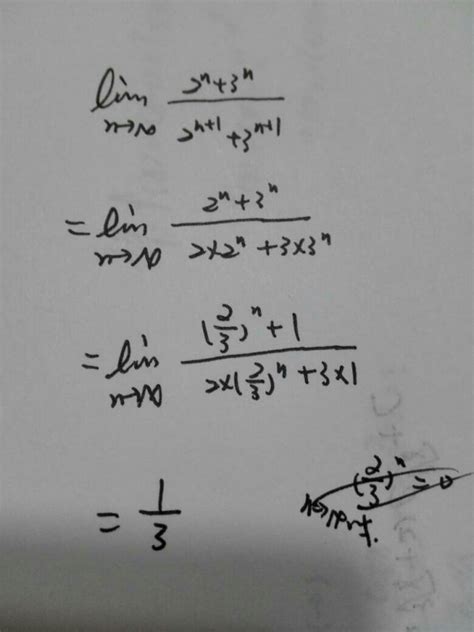 lim n→∞ (2ⁿ+3ⁿ)/(2ⁿ⁺¹+3ⁿ⁺¹)
= lim n→∞ (2ⁿ+3ⁿ)/(2×2ⁿ+3×3ⁿ)
= lim n→∞ ((2/3)ⁿ+1)/(2×(2/3)ⁿ+3×1)
= 1/3
(2/3)ⁿ = 0
n→